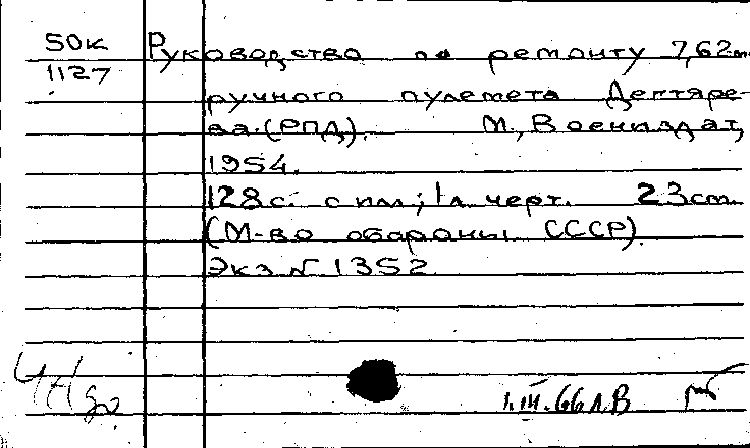 50к Руководство по ремонту 7,62м
1127
ручного пулемета Дегтяре-
ва (РПД). М., Воениздат,
1954.
128с. с илл; 1л черт. 23см.
(М-во обороны СССР)
Экз № 1352
1.III.66 л.В